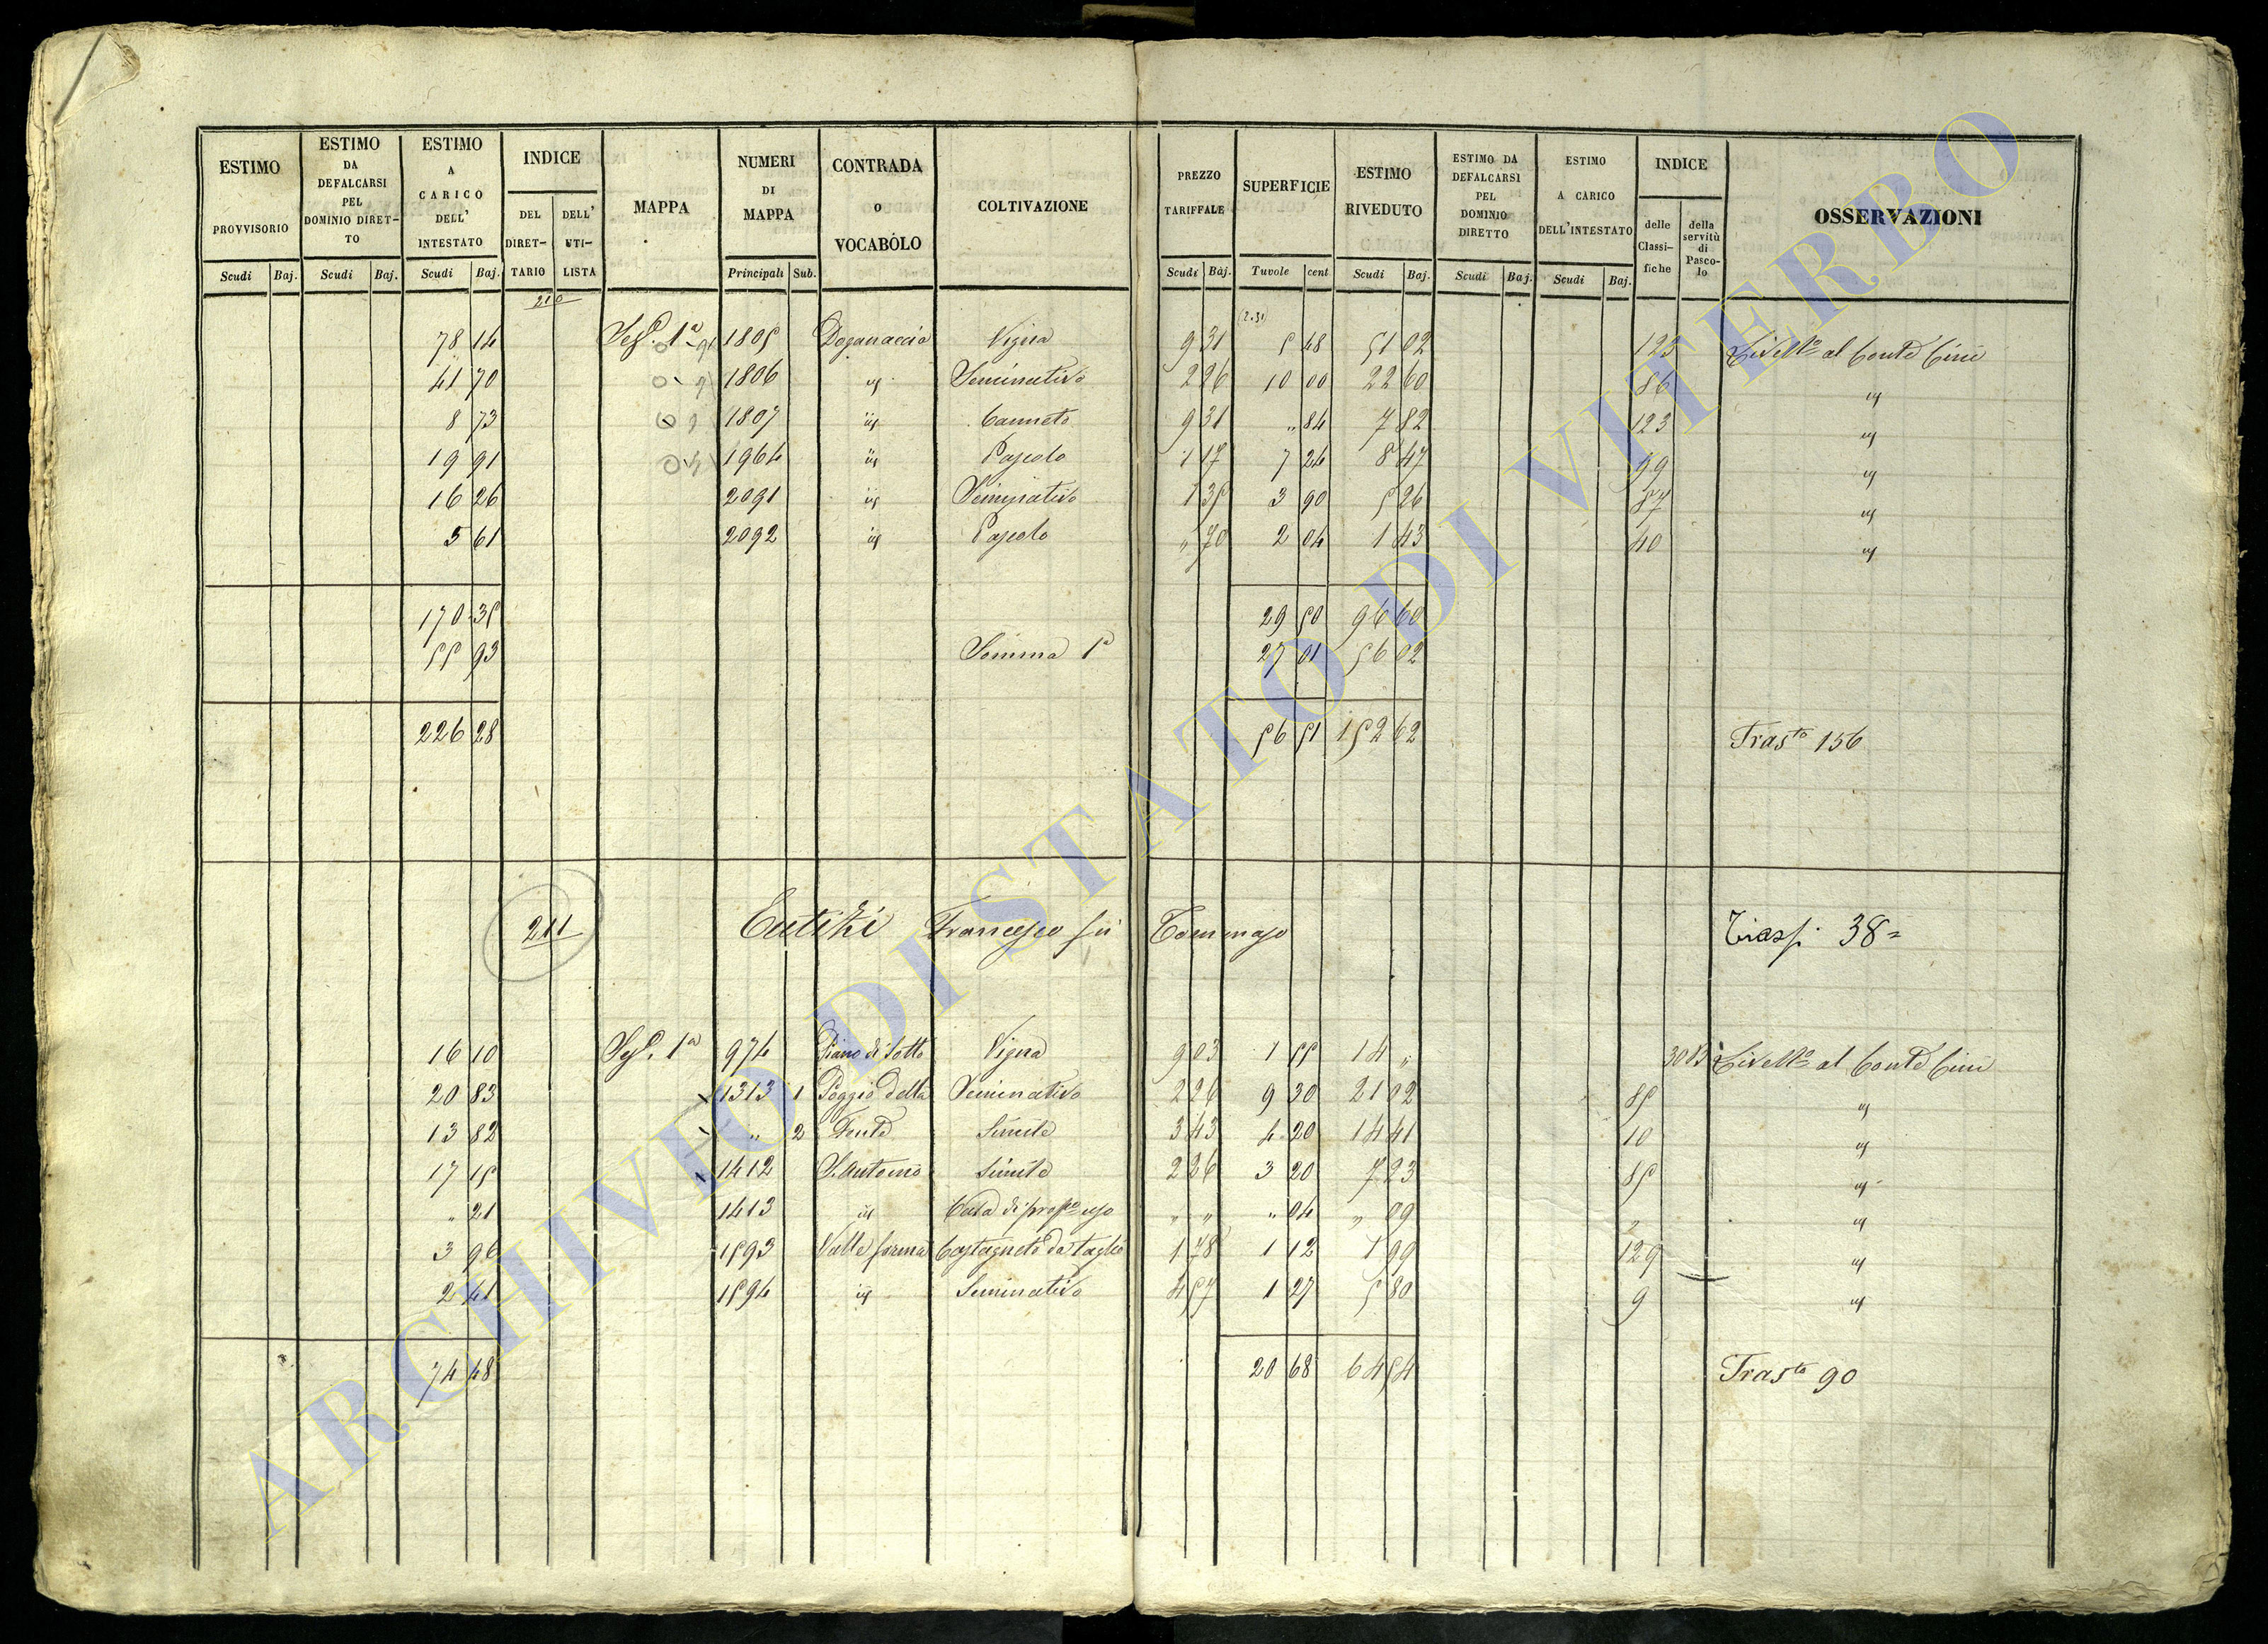 ESTIMO PROVVISORIO
ESTIMO DA DEFALCARSI PEL DOMINIO DIRET-TO
ESTIMO A CARICO DELL' INTESTATO
INDICE
DEL DIRET-TARIO
DELL' UTI-LISTA
MAPPA
NUMERI DI MAPPA
CONTRADA o VOCABOLO
COLTIVAZIONE
PREZZO TARIFFALE
SUPERFICIE
ESTIMO RIVEDUTO
ESTIMO DA DEFALCARSI PEL DOMINIO DIRETTO
ESTIMO A CARICO DELL'INTESTATO
INDICE
delle Classi-fiche
della servitù di Pasco-lo
OSSERVAZIONI
Scudi Baj. Scudi Baj. Scudi Baj. Principali Sub. Scudi Baj. Tavole cent Scudi Baj. Scudi Baj. Scudi Baj.
210
(2.31)
78 14 1ª 1805 Doganaccia Vigna 9 31 5 48 51 02 123 al Conte Cini
41 70 1806 Seminativo 2 26 10 00 22 60 86
8 73 1807 Canneto 9 31 „ 84 7 82 123
19 91 1964 Pascolo 1 17 7 24 8 47 99
16 26 2091 Seminativo 1 35 3 90 5 26 87
5 61 2092 Pascolo „ 70 2 04 1 43 40
170 35 29 50 96 60
55 93 Somma 1ª 27 01 56 02
226 28 56 51 152 62 Trasto 156
211 Eutizi Francesco fu Tommaso Trasp. 38=
16 10 1ª 974 Piano di Sotto Vigna 9 03 1 55 14 „ al Conte Cini
20 83 1313 1 Poggio della Seminativo 2 26 9 30 21 02 85
13 82 „ 2 Fonte Simile 3 43 4 20 14 41 10
17 15 1412 S. Antonio Simile 2 26 3 20 7 23 85
„ 21 1413 Casa di propº uso „ „ „ 04 „ 09 „
3 96 1593 Valle forma Castagneto da taglio 1 78 1 12 1 99 129
2 41 1594 Seminativo 4 57 1 27 5 80 9
74 48 20 68 64 54 Trasto 90
ARCHIVIO DI STATO DI VITERBO